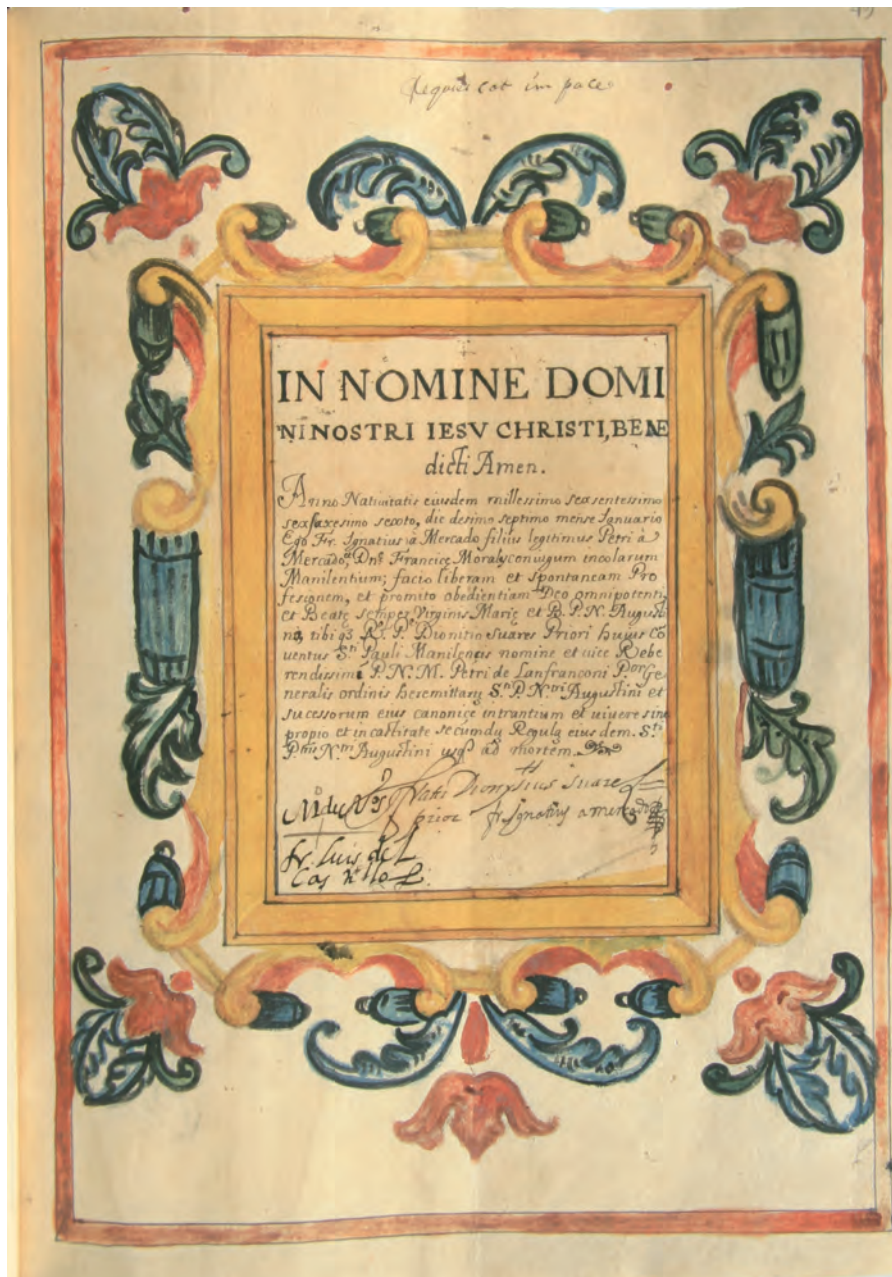 Requiescat in pace
IN NOMINE DOMI
NI NOSTRI IESV CHRISTI, BENE
dicti Amen.
Anno Natiuitatis eiusdem millessimo sexsentessimo
sexsaxesimo sexto, die desimo septimo mense Ianuario
Ego Fr. Ignatius à Mercado filius legitimus Petri à
Mercado, et Dnę Francicę Morales conuigum incolarum
Manilentium; facio liberam et spontaneam Pro
fesionem, et promito obedientiam Deo omnipotenti,
et Beatę semper Virginis Marię et B. P. N. Augusti
no, tibi qȝ Rdo. P. Dionitio Suares Priori huius Cō
uentus Sti. Pauli Manilensis nomine et uice Rebe
rendissimi P. N. M. Petri de Lanfranconi Por Ge
neralis ordinis heremittarų Sti P. Ntri Augustini et
sucessorum eius canonicę intrantium et uiuere sine
propio et in castitate secumdų Regulą eius dem. Sti
Ptris Ntri Augustini usq ad mortem.
Frater Dionysius suarez
prior fr. Ignatius a mercado
fr. Luis del
Castillo